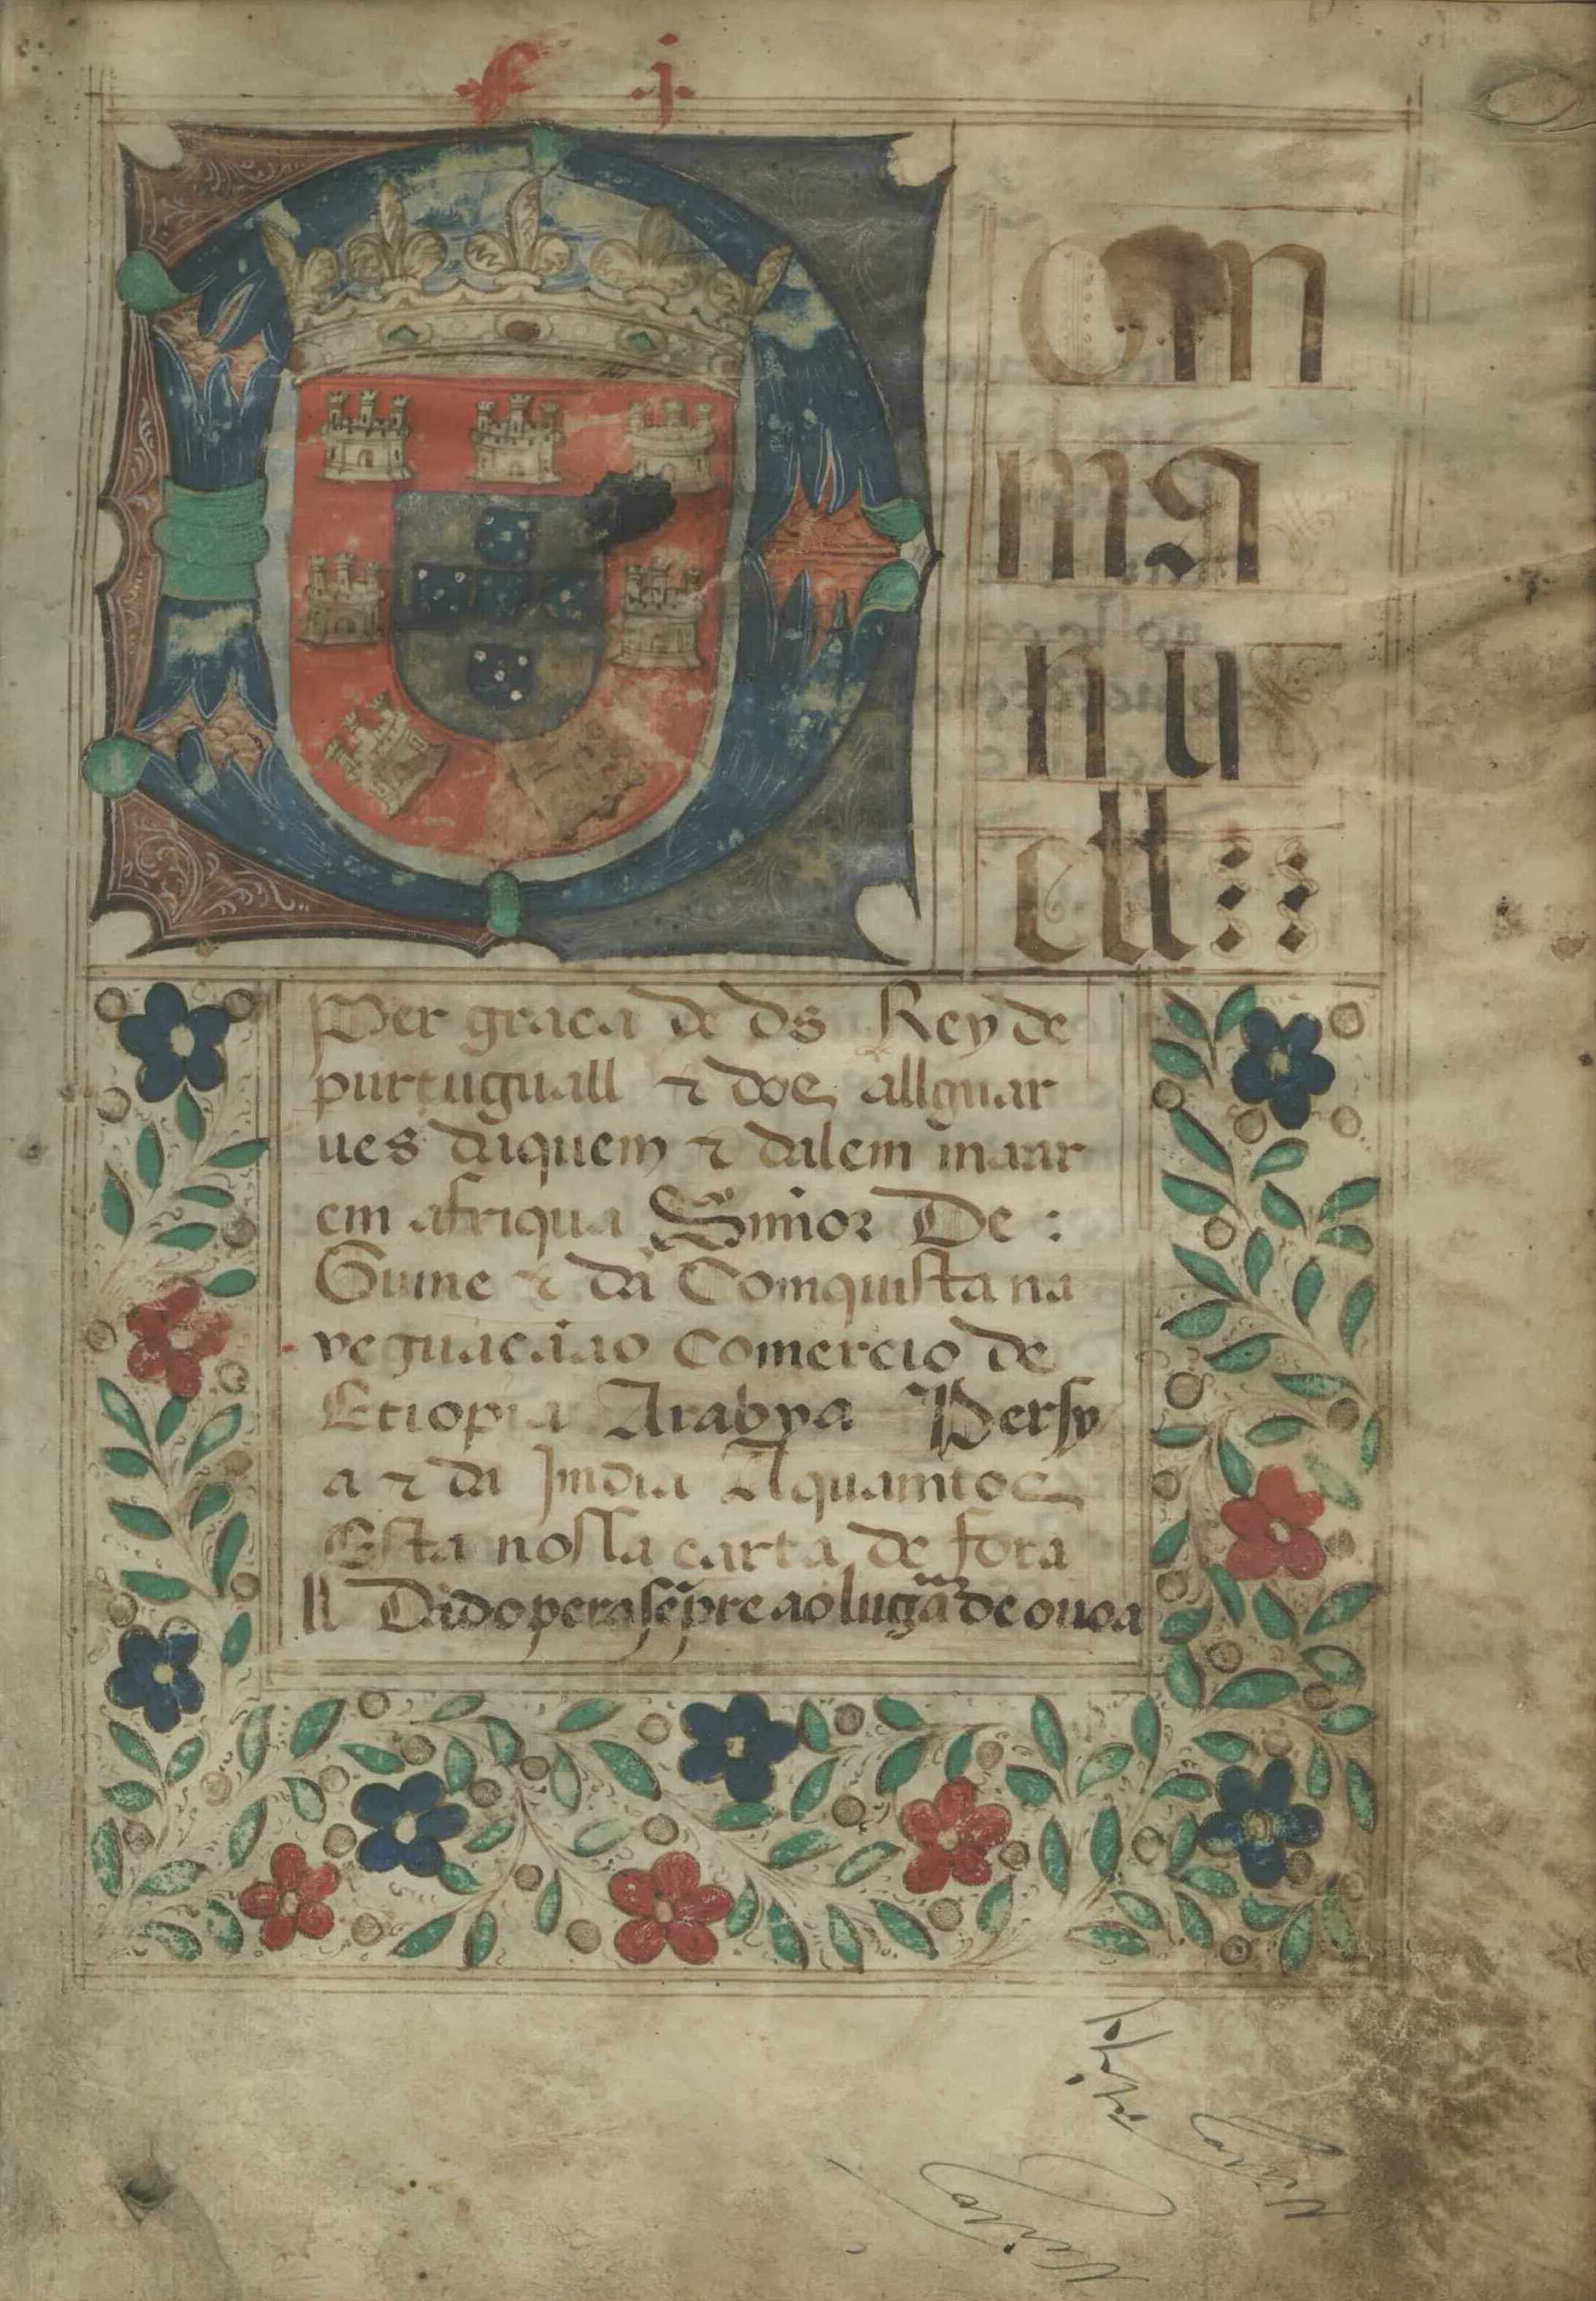 f j
Dom
ma
nu
ell
Per graca de ds Rey de
purtuguall ⁊ dos allguar
ues daquem ⁊ dalem maar
em afriqua Snnor De :
Guine ⁊ da Comquista na
veguacaao comercio de
Etiopia Arabya Persy
a ⁊ da Jmdia Aquamtos
Esta nossa carta de fora
ll Dado pera sẽpre ao lugar de ouoa